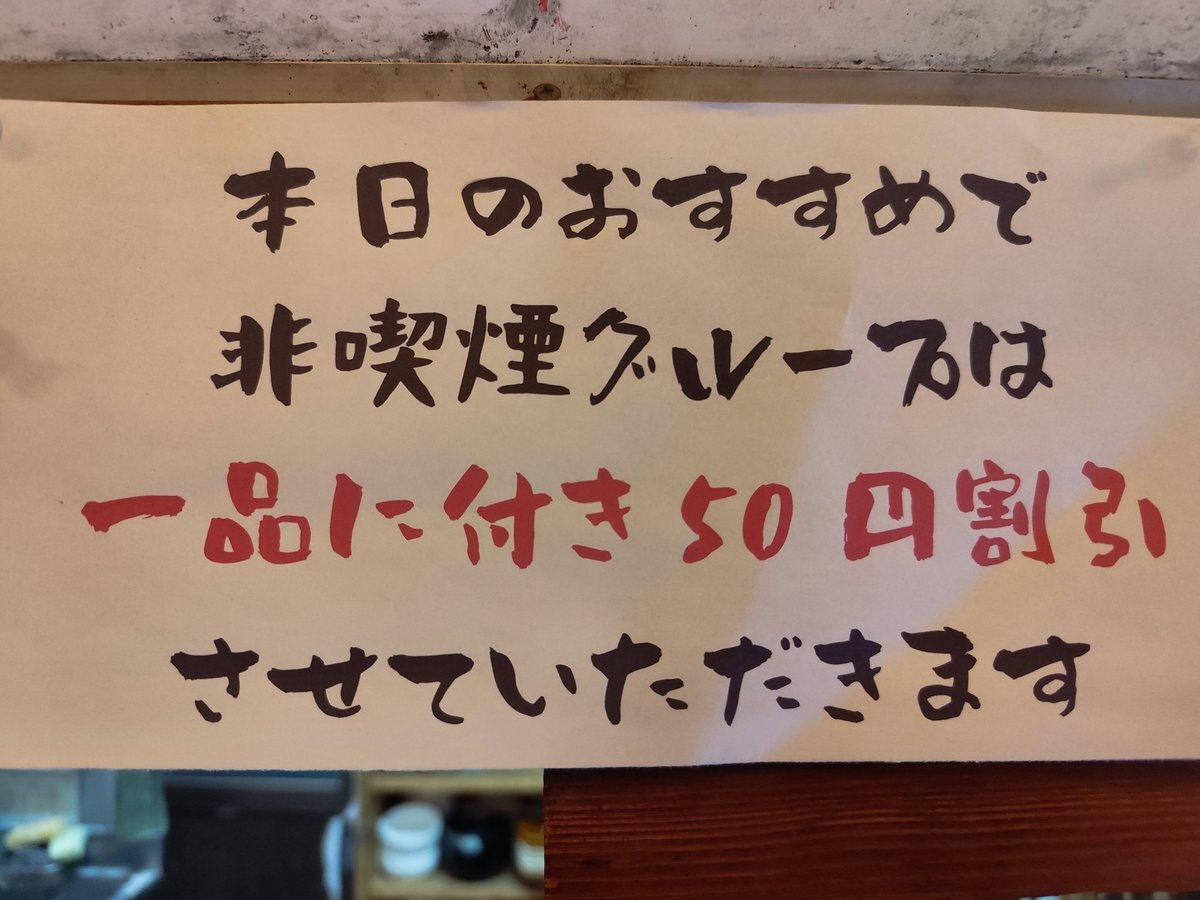 本日のおすすめで
非喫煙グループは
一品に付き50円割引
させていただきます